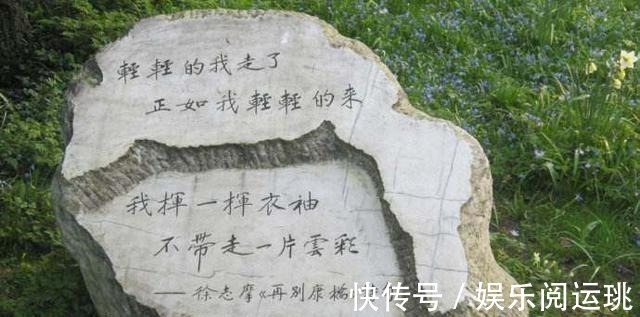 輕輕的我走了
正如我輕輕的来
我揮一揮衣袖
不带走一片雲彩
——徐志摩《再別康橋
快传号／娱乐阅运珧